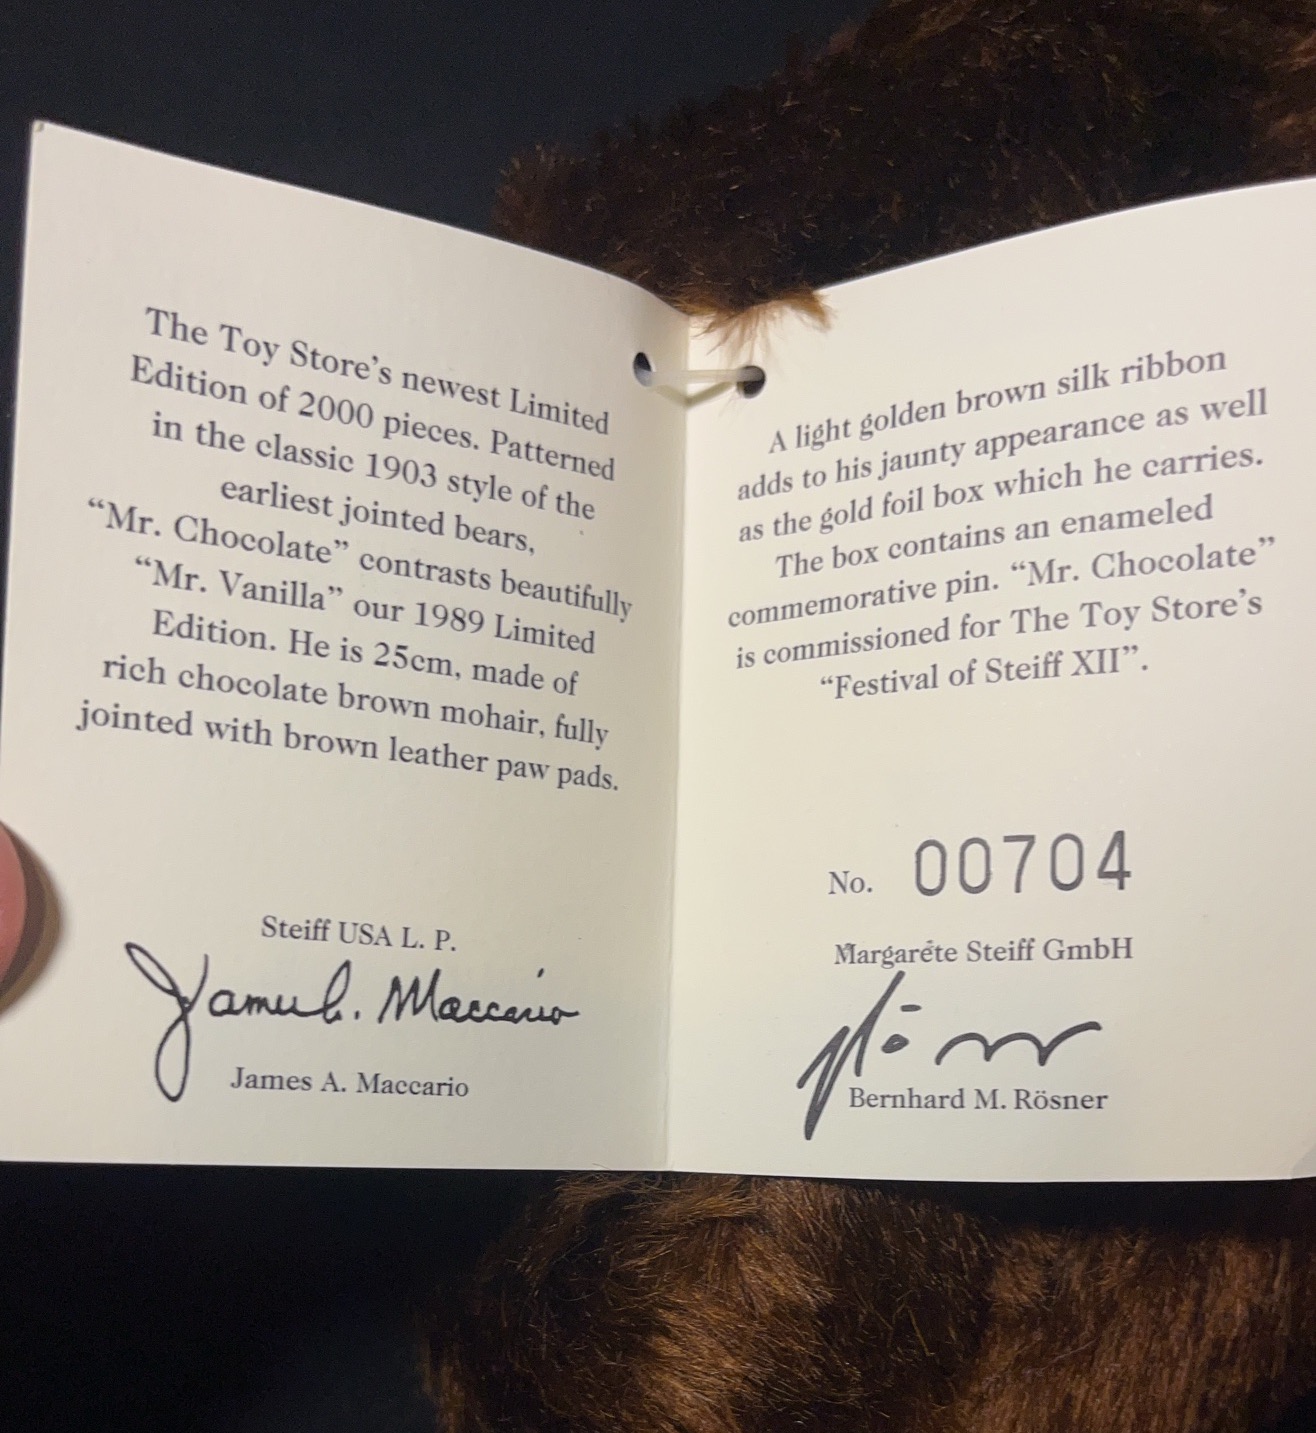 The Toy Store's newest Limited
Edition of 2000 pieces. Patterned
in the classic 1903 style of the
earliest jointed bears,
“Mr. Chocolate” contrasts beautifully
“Mr. Vanilla” our 1989 Limited
Edition. He is 25cm, made of
rich chocolate brown mohair, fully
jointed with brown leather paw pads.
Steiff USA L. P.
James A. Maccario
James A. Maccario
A light golden brown silk ribbon
adds to his jaunty appearance as well
as the gold foil box which he carries.
The box contains an enameled
commemorative pin. “Mr. Chocolate”
is commissioned for The Toy Store's
“Festival of Steiff XII”.
No. 00704
Margarete Steiff GmbH
Bernhard M. Rösner